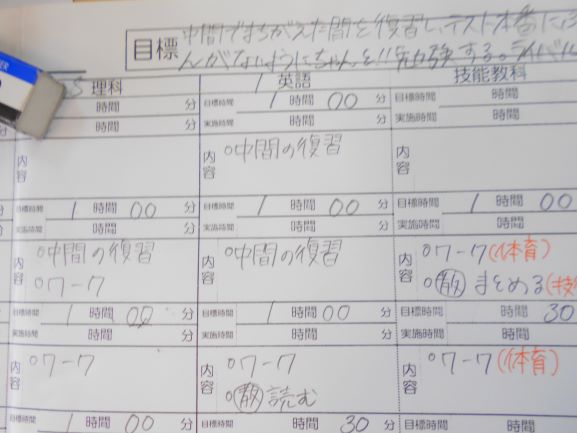 目標
中間でまちがえた問を復習し、テスト本番に
んがないようにちゃんと!!勉強する。ライバル
理科 英語 技能教科
時間 分 目標時間 1 時間 00 分 目標時間 時間
時間 分 実施時間 時間 分 実施時間 時間
内容 内容 ○中間の復習 内容
目標時間 1 時間 00 分 目標時間 1 時間 00 分 目標時間 1 時間 00
実施時間 時間 分 実施時間 時間 分 実施時間 時間
内容 ○中間の復習 内容 ○中間の復習 内容 ○ワーク(体育)
○ワーク ○教まとめる(技
目標時間 1 時間 00 分 目標時間 1 時間 00 分 目標時間 時間 30
実施時間 時間 分 実施時間 時間 分 実施時間 時間
内容 ○ワーク 内容 ○ワーク 内容 ○ワーク(体育)
○教読む
目標時間 1 時間 00 分 目標時間 時間 30 分 目標時間 時間